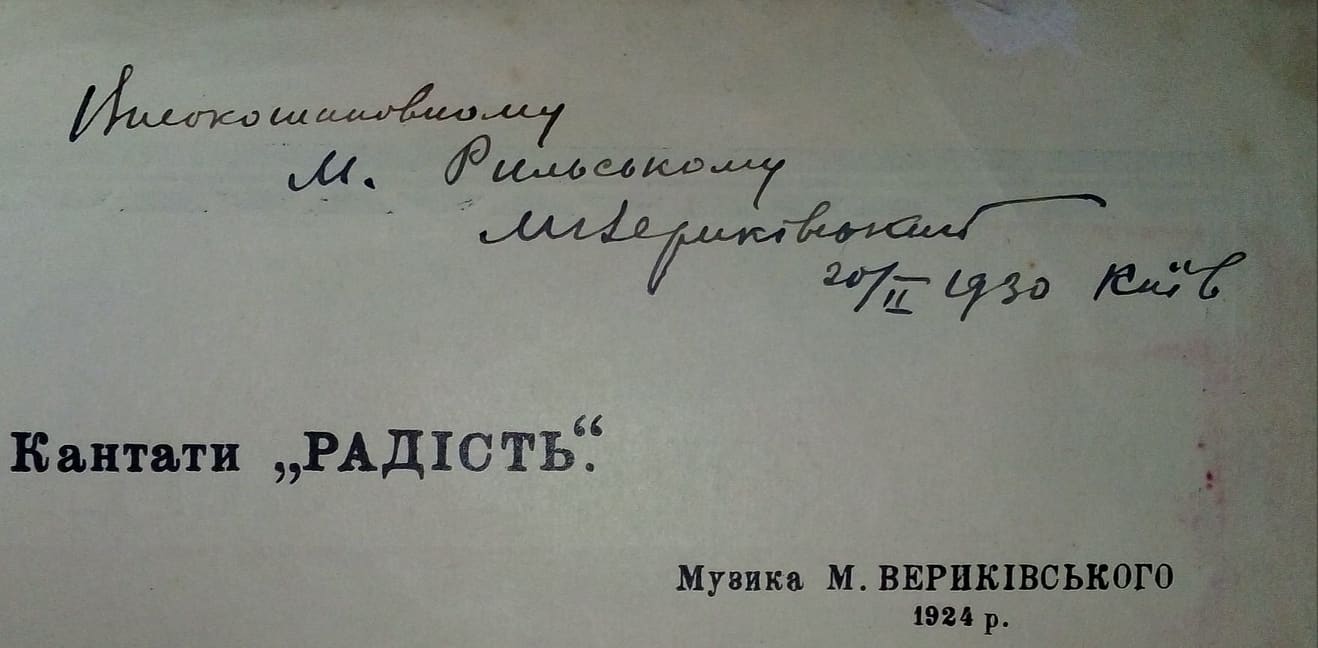 Високошановному
М. Рильському
МВериківський
20/II 1930 Київ
Кантати „РАДІСТЬ“.
Музика М. ВЕРИКІВСЬКОГО
1924 р.